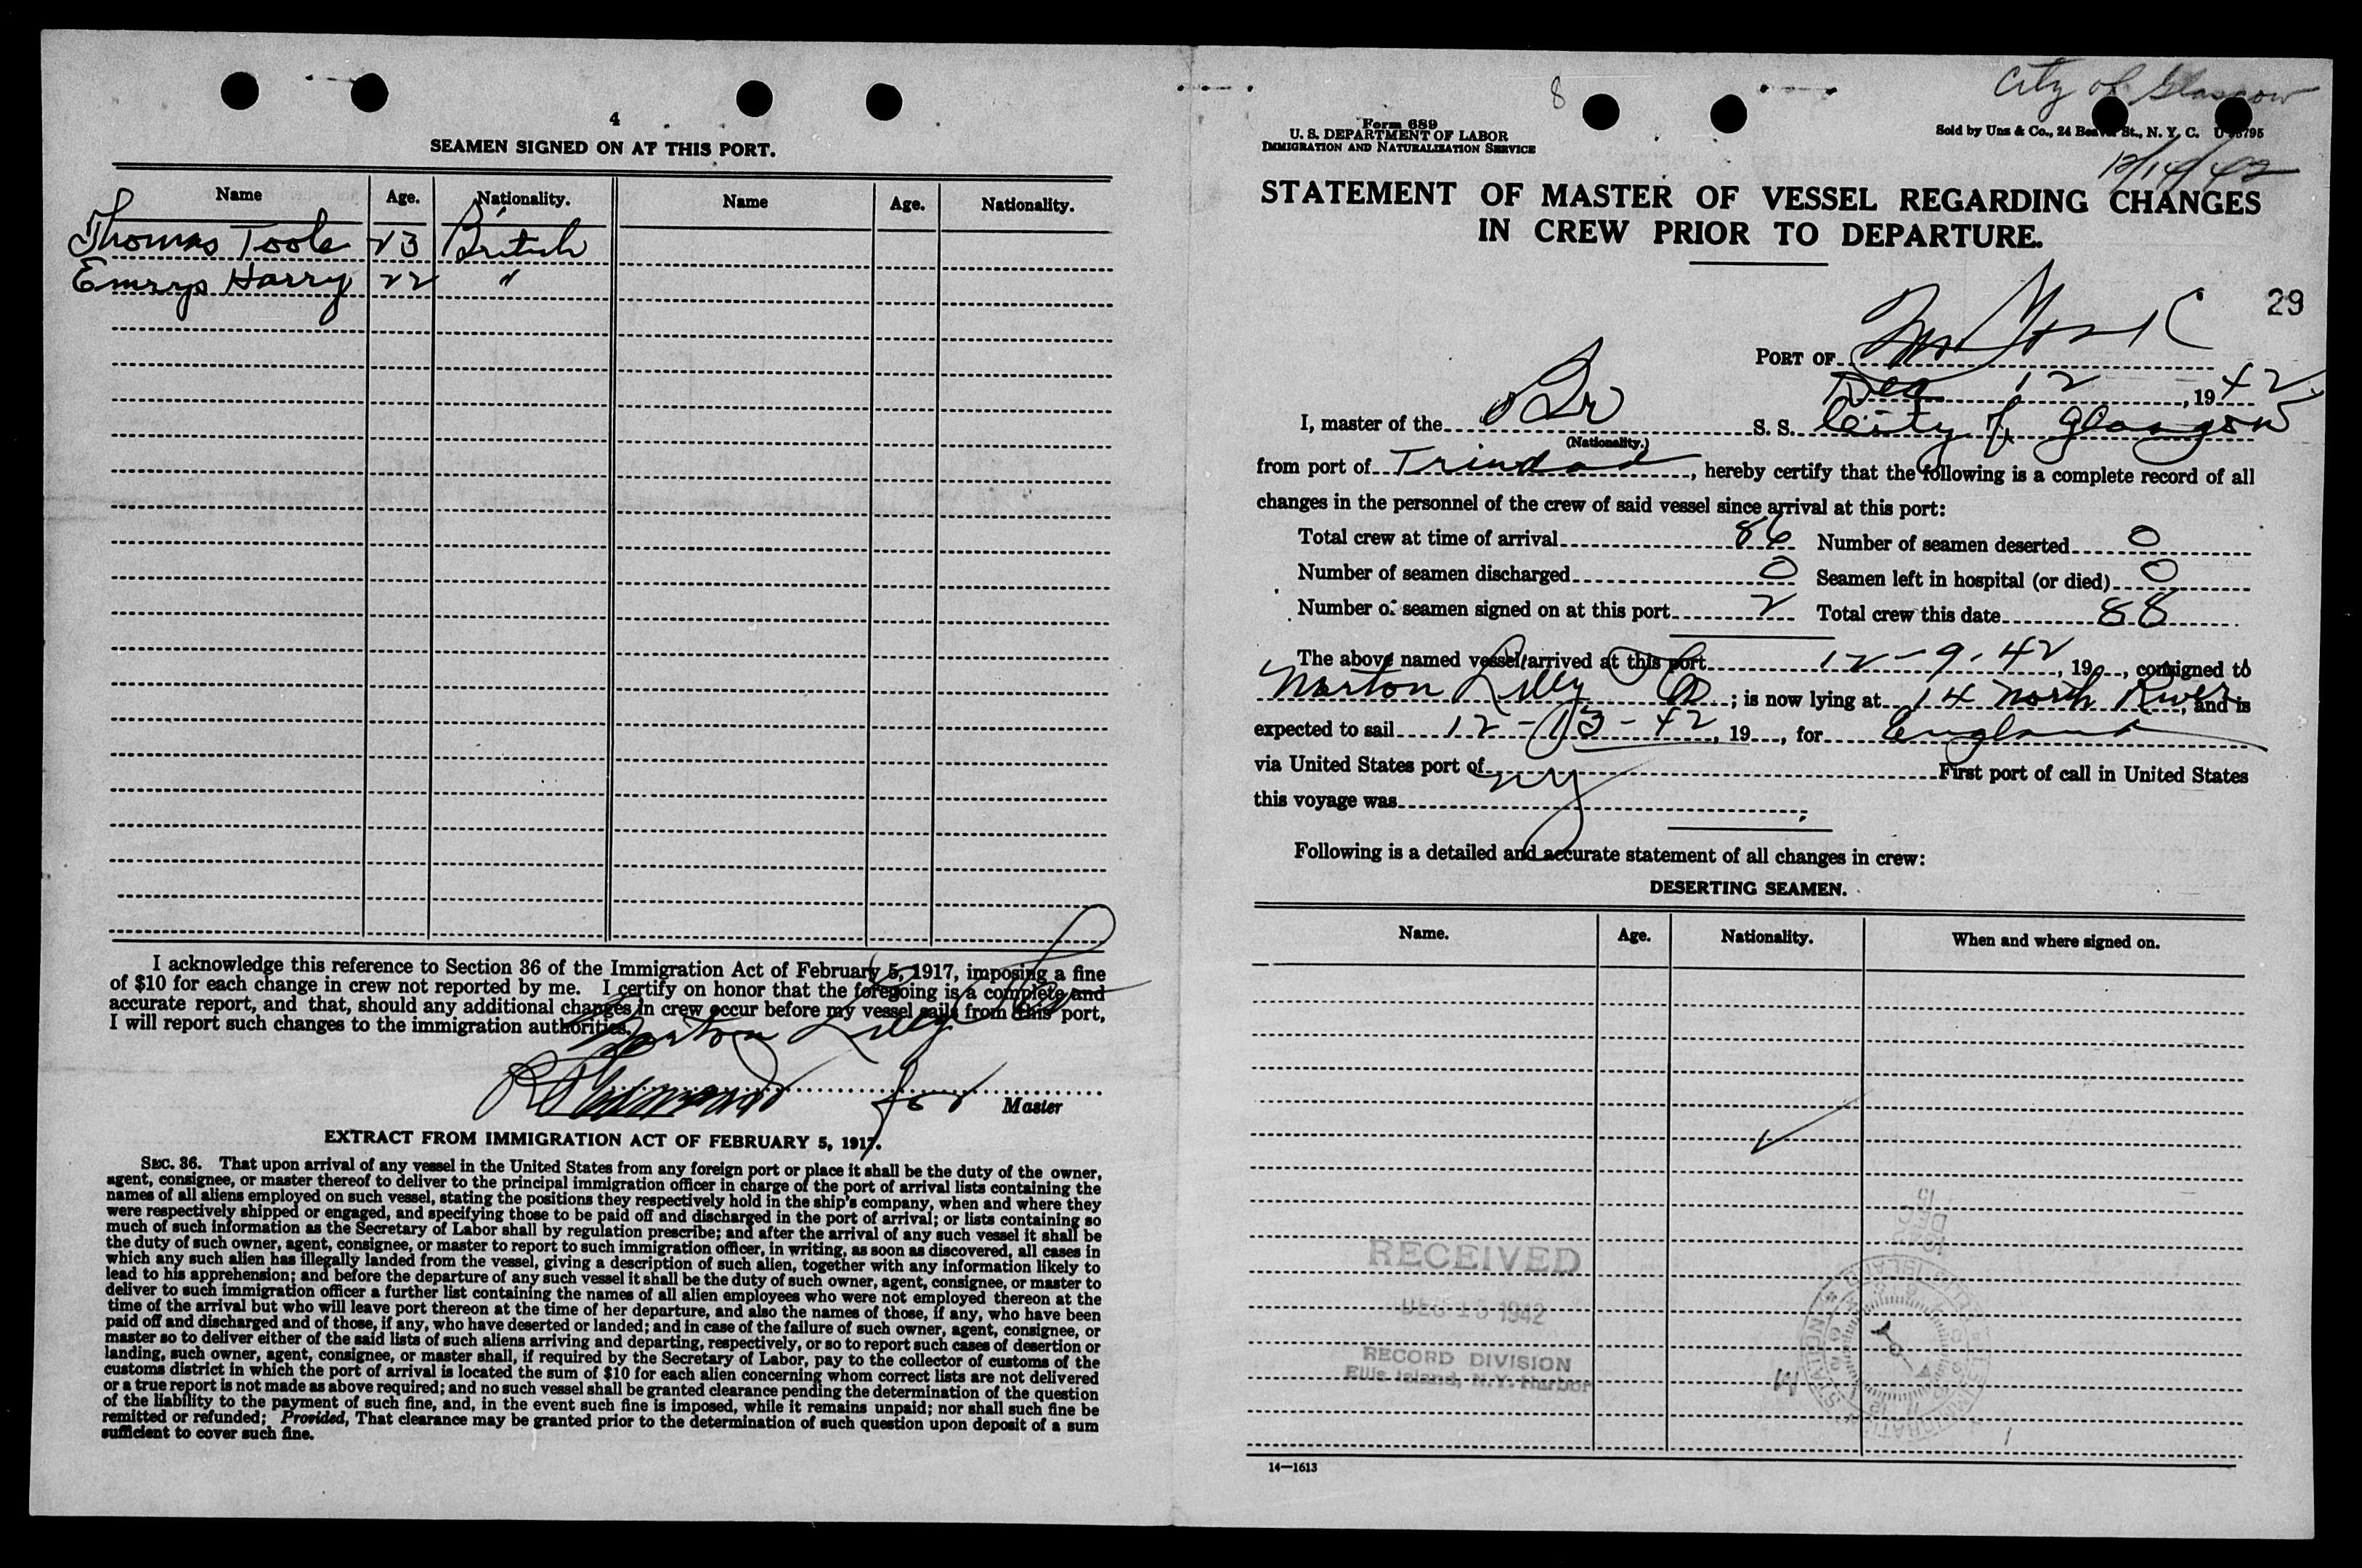 4
SEAMEN SIGNED ON AT THIS PORT.
Name Age. Nationality. Name Age. Nationality.
Thomas Toole 23 British
Emrys Harry 22 "
I acknowledge this reference to Section 36 of the Immigration Act of February 5, 1917, imposing a fine
of $10 for each change in crew not reported by me. I certify on honor that the foregoing is a complete and
accurate report, and that, should any additional changes in crew occur before my vessel sails from this port,
I will report such changes to the immigration authorities.
Norton Lilly Co
for Master
EXTRACT FROM IMMIGRATION ACT OF FEBRUARY 5, 1917.
SEC. 36. That upon arrival of any vessel in the United States from any foreign port or place it shall be the duty of the owner,
agent, consignee, or master thereof to deliver to the principal immigration officer in charge of the port of arrival lists containing the
names of all aliens employed on such vessel, stating the positions they respectively hold in the ship's company, when and where they
were respectively shipped or engaged, and specifying those to be paid off and discharged in the port of arrival; or lists containing so
much of such information as the Secretary of Labor shall by regulation prescribe; and after the arrival of any such vessel it shall be
the duty of such owner, agent, consignee, or master to report to such immigration officer, in writing, as soon as discovered, all cases in
which any such alien has illegally landed from the vessel, giving a description of such alien, together with any information likely to
lead to his apprehension; and before the departure of any such vessel it shall be the duty of such owner, agent, consignee, or master to
deliver to such immigration officer a further list containing the names of all alien employees who were not employed thereon at the
time of the arrival but who will leave port thereon at the time of her departure, and also the names of those, if any, who have been
paid off and discharged and of those, if any, who have deserted or landed; and in case of the failure of such owner, agent, consignee, or
master so to deliver either of the said lists of such aliens arriving and departing, respectively, or so to report such cases of desertion or
landing, such owner, agent, consignee, or master shall, if required by the Secretary of Labor, pay to the collector of customs of the
customs district in which the port of arrival is located the sum of $10 for each alien concerning whom correct lists are not delivered
or a true report is not made as above required; and no such vessel shall be granted clearance pending the determination of the question
of the liability to the payment of such fine, and, in the event such fine is imposed, while it remains unpaid; nor shall such fine be
remitted or refunded; Provided, That clearance may be granted prior to the determination of such question upon deposit of a sum
sufficient to cover such fine.
8
City of Glasgow
Form 689
U. S. DEPARTMENT OF LABOR
IMMIGRATION AND NATURALIZATION SERVICE
Sold by Unz & Co., 24 Beaver St., N. Y. C.
12/14/42
STATEMENT OF MASTER OF VESSEL REGARDING CHANGES
IN CREW PRIOR TO DEPARTURE.
29
PORT OF New York
Dec 12, 1942
I, master of the Br S. S. City of Glasgow
(Nationality.)
from port of Trindad, hereby certify that the following is a complete record of all
changes in the personnel of the crew of said vessel since arrival at this port:
Total crew at time of arrival 86 Number of seamen deserted 0
Number of seamen discharged 0 Seamen left in hospital (or died) 0
Number of seamen signed on at this port 2 Total crew this date 88
The above named vessel arrived at this port 12-9-42, 19, consigned to
Norton Lilly Co; is now lying at 14 North River, and is
expected to sail 12-13-42, 19, for England
via United States port of NY First port of call in United States
this voyage was ;
Following is a detailed and accurate statement of all changes in crew:
DESERTING SEAMEN.
Name. Age. Nationality. When and where signed on.
RECEIVED
DEC 15 1942
RECORD DIVISION
Ellis Island, N.Y. Harbor
14—1613